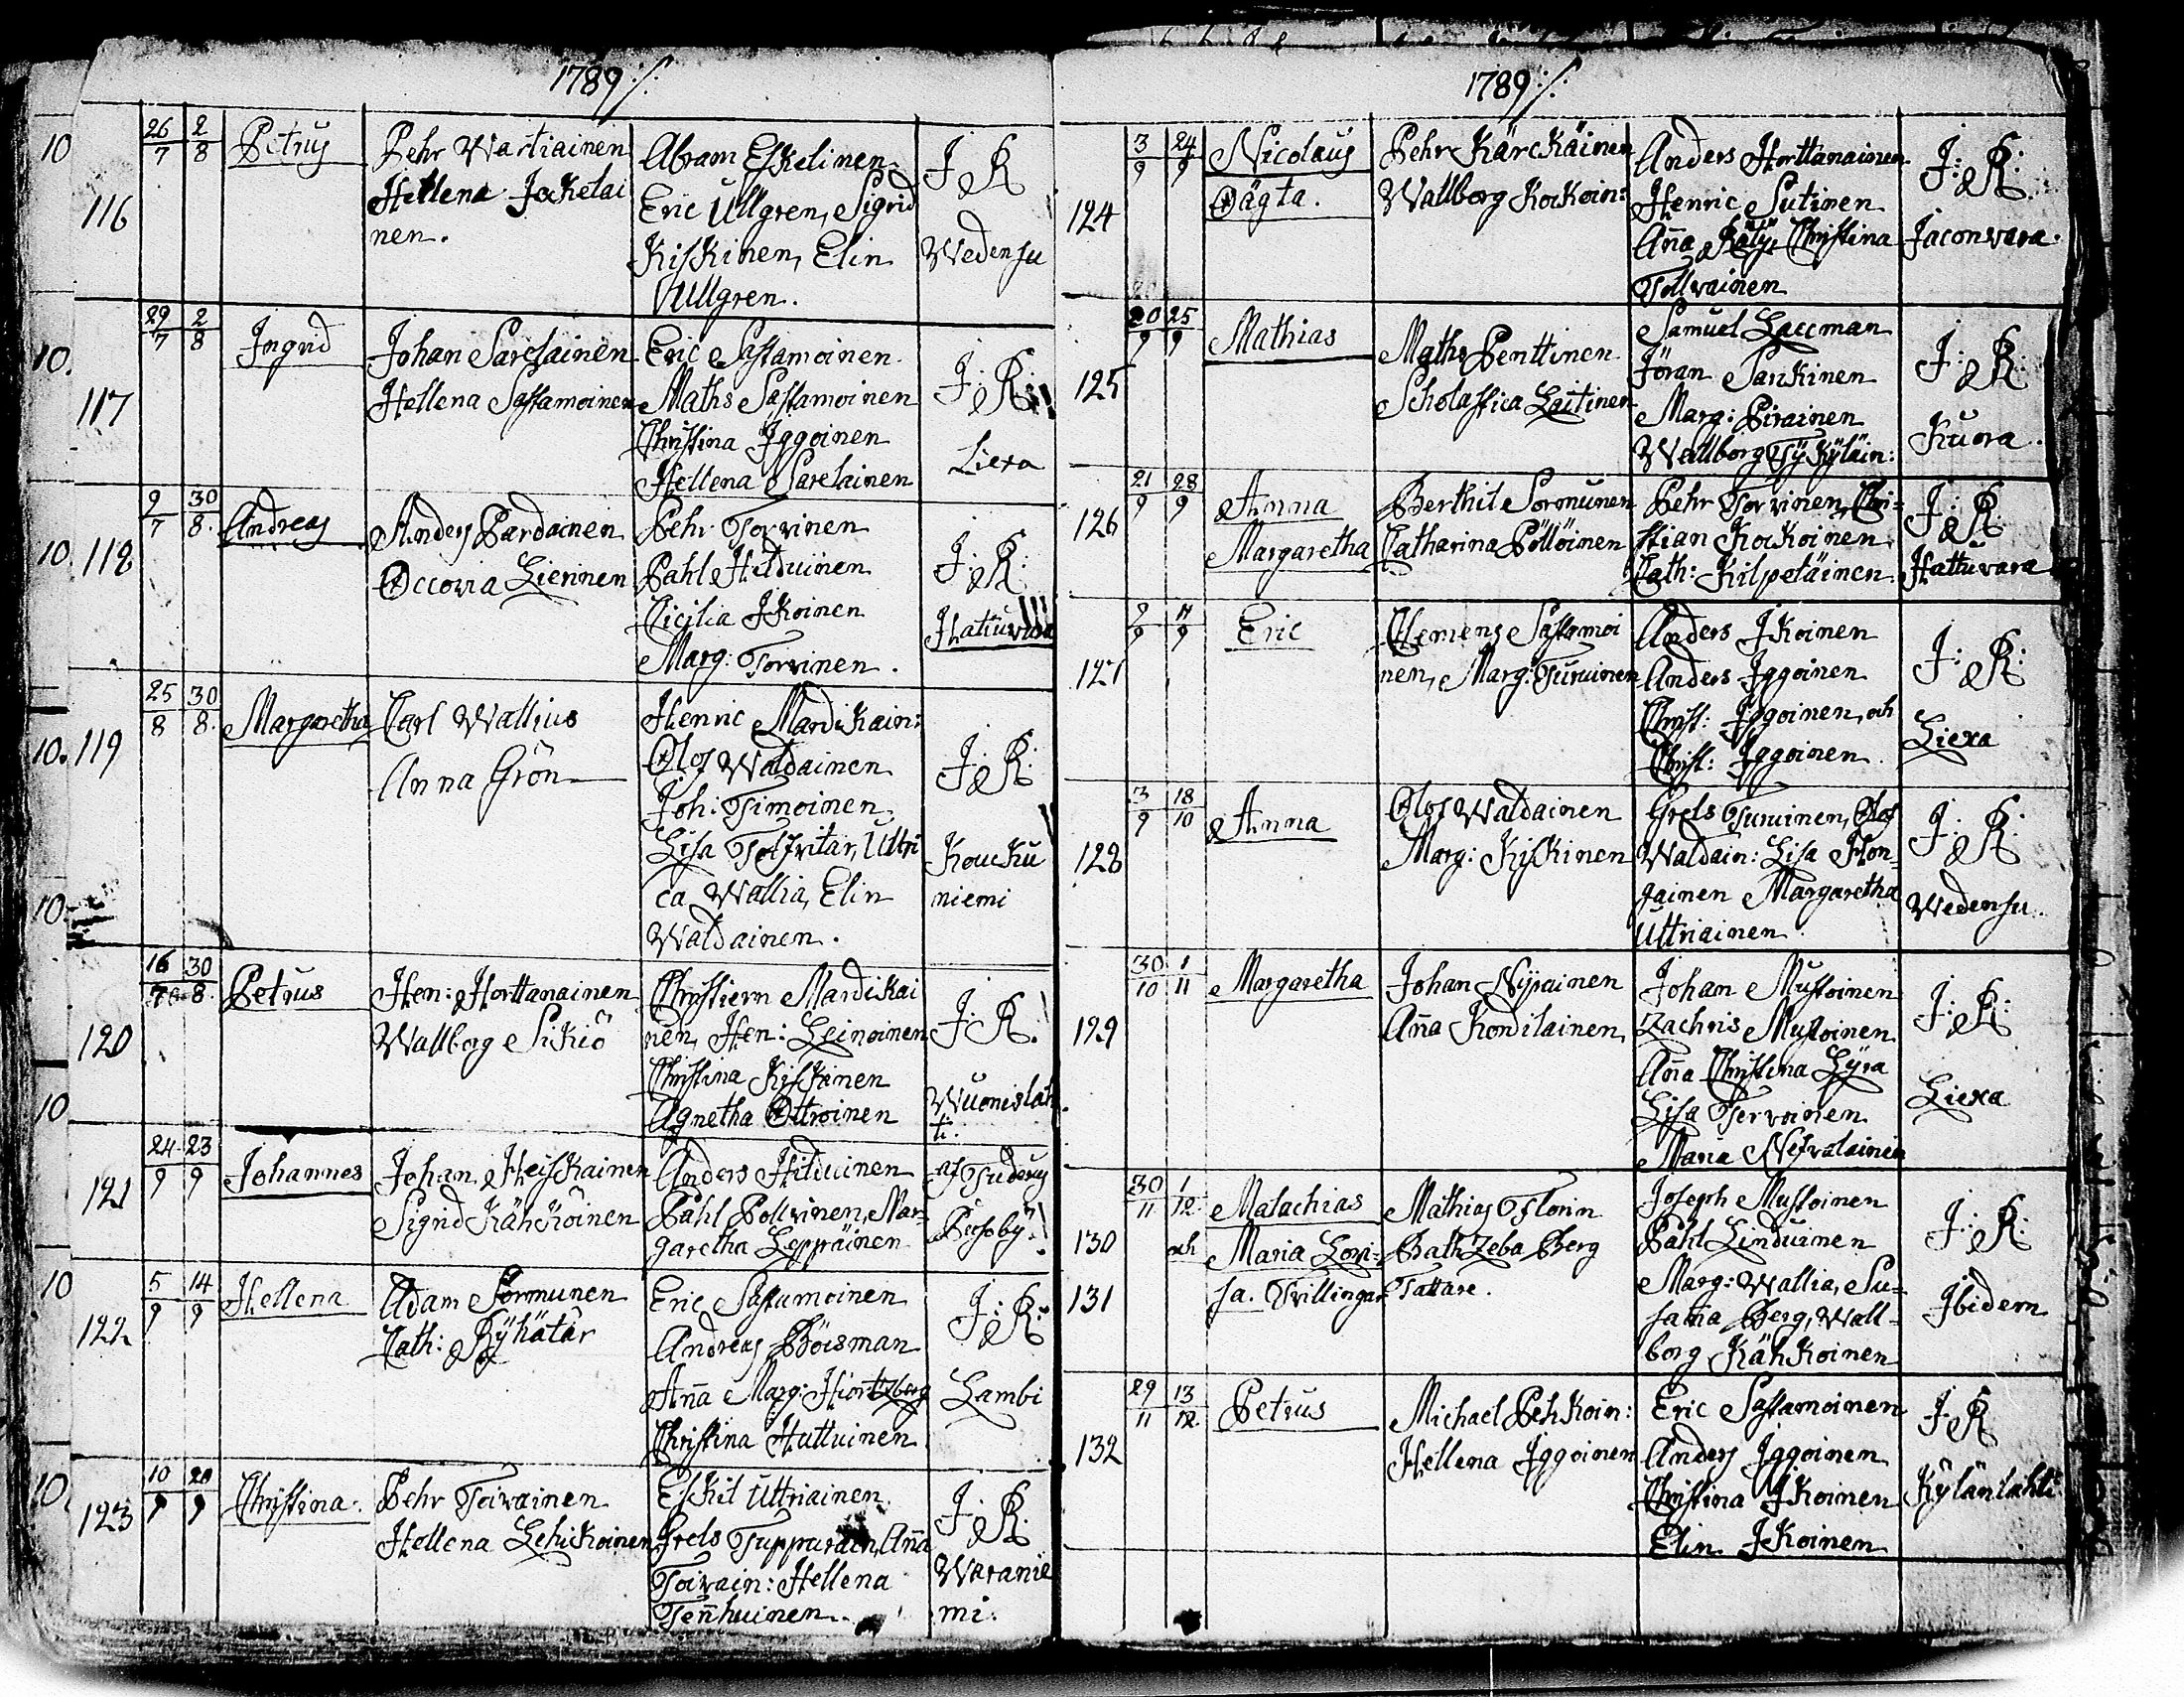 1789 /.
10
116
26/7 2/8
Petrus
Pehr Wartiainen
Hellena Jocketai
nen.
Abram Eskelinen
Eric Ullgren, Sigrid
Kiskinen, Elin
Ullgren.
J R
Wedensu
10.
117
29/7 2/8
Ingrid
Johan Sarelainen
Hellena Sastamoinen
Eric Sastamoinen
Maths Sastamoinen
Christina Iggoinen
Hellena Sarelainen
J: R:
Liexa
10.
118
9/7 30/8.
Andreas
Anders Pardainen
Occovia Lierinen
Pehr Torvinen
Pahl Hilduinen
Cicilia Ikoinen
Marg: Torvinen.
J: R:
Hattuvara
10.
119
25/8 30/8.
Margaretha
Carl Wallius
Anna Grön
Henric Mardikain:
Olof Waldainen
Joh: Timoinen
Lisa Ultri
ca Wallia, Elin
Waldainen.
J: R:
Koucku
niemi
10
120
16/7 30/8.
Petrus
Hen: Horttanainen
Wallborg Sikiö
Christiern Mardikai
nen, Hen: Leinoinen
Christina Kiskinen
Agnetha Ottroinen
J: R:
Wuonislah
ti.
10
121
24/9 23/9
Johannes
Johan Heiskainen
Sigrid Kähköinen
Anders Hilduinen
Pahl Pollvinen, Mar-
garetha Leppäinen
10
122
5/9 14/9
Hellena
Adam Sormunen
Cath: Ryhätär
Eric Sastamoinen
Andreas Böisman
Anna Marg: Hiortzberg
Christina Huttuinen
J: R:
Lambi
10
123
10/9 20/9
Christina.
Pehr Toivainen
Hellena Lehikoinen
Eskil Uttriainen
Grels Tuppurain, Anna
Toivain: Hellena
Tenhuinen.
J: R:
Waranie
mi.
1789 :/:
124
3/9 24/9
Nicolaus
Oägta.
Pehr Kärckäinen
Wallborg Kockoin:
Anders Horttanainen
Henric Sutinen
Anna Räty, Christina
Tollvainen
J: R:
Jaconvara.
125
20/9 25/9
Mathias
Maths Penttinen
Scholastica Laitinen
Samuel Laccman
Jöran Sarkinen
Marg: Pirainen
Wallborg Tykyläin:
J: R:
Kuora.
126
21/9 28/9
Anna
Margaretha
Berthil Sormunen
Catharina Pöllöinen
Pehr Torvinen, Chri-
stian Kockoinen
Cath: Kilpeläinen
J: R:
Hattuvara
127
Eric
Clemens Sastamoi
nen, Marg: Turuinen
Anders Ikoinen
Anders Iggoinen
Christ: Iggoinen, och
Christ: Iggoinen
J: R:
Liexa
128
3/9 18/10
Anna
Olof Waldainen
Marg: Kiskinen
Grels Turuinen, Olof
Waldain: Lisa Hon-
gainen Margaretha
Uttriainen
J: R:
Wedensu.
129
30/10 1/11
Margaretha
Johan Nyrainen
Anna Kondilainen
Johan Mustoinen
Zachris Mustoinen
Anna Christina Lyra
Lisa Tervoinen
Maria Nefvalainen
J: R:
Liexa
130
131
30/11 1/12
och
Malachias
Maria Lovi-
sa. Tvillingar
Mathias Florin
Bath Zeba Berg
Tattare.
Joseph Mustoinen
Pahl Linduinen
Marg: Wallia, Su-
sanna Berg, Wall-
borg Kähkoinen
J: R:
Ibidem
132
29/11 13/12
Petrus
Michael Pehkoin:
Hellena Iggoinen
Eric Sastamoinen
Anders Iggoinen
Christina Ikoinen
Elin Ikoinen
J: R
Kylänlahti